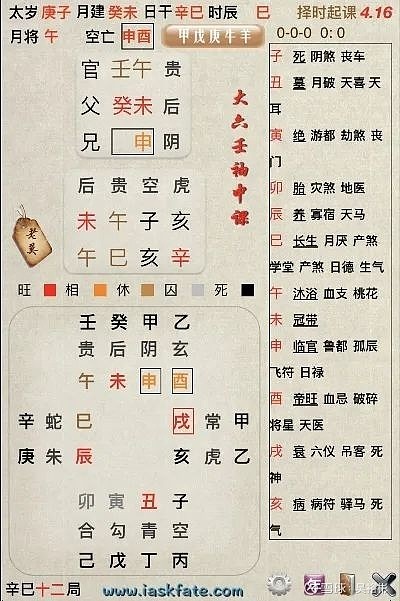 太岁 庚子 月建 癸未 日干 辛巳 时辰 巳 择时起课 4.16
月将 午 空亡 申酉 甲戊庚牛羊 0-0-0 0:0
官 壬午 贵
父 癸未 后
兄 申 阴
后 贵 空 虎
未 午 子 亥
午 巳 亥 辛
大六壬袖中课
老黄
旺 相 休 囚 死
壬 癸 甲 乙
贵 后 阴 玄
午 未 申 酉
辛 蛇 巳 戌 常 甲
庚 朱 辰 亥 虎 乙
卯 寅 丑 子
合 勾 青 空
己 戊 丁 丙
子 死 阴煞 丧车
丑 墓 月破 天喜 天
耳
寅 绝 游都 劫煞 丧
门
卯 胎 灾煞 地医
辰 养 寡宿 天马
巳 长生 月厌 产煞
学堂 产煞 日德 生气
午 沐浴 血支 桃花
未 冠带
申 临官 鲁都 孤辰
飞符 日禄
酉 帝旺 血忌 破碎
将星 天医
戌 衰 六仪 吊客 死
神
亥 病 病符 驿马 死
气
辛巳十二局
www.iaskfate.com
年